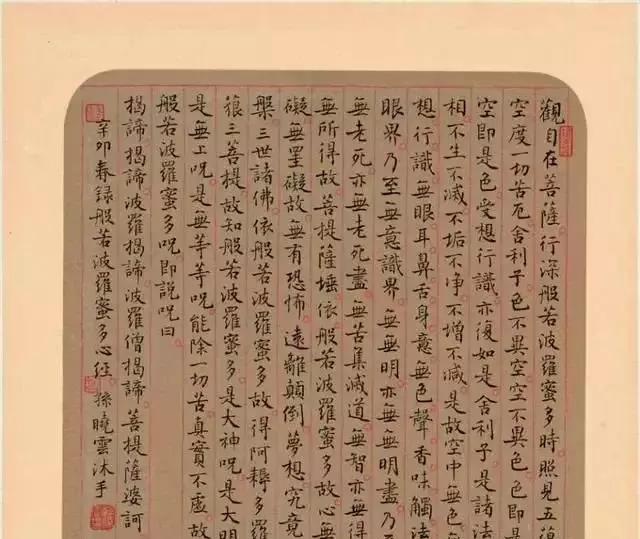 觀自在菩薩行深般若波羅蜜多時照見五蕴
空度一切苦厄舍利子色不異空空不異色色即是
空即是色受想行識亦復如是舍利子是諸法
相不生不滅不垢不淨不增不減是故空中無色
想行識無眼耳鼻舌身意無色聲香味觸法
眼界乃至無意識界無無明亦無無明盡乃至
無老死亦無老死盡無苦集滅道無智亦無得
無所得故菩提薩埵依般若波羅蜜多故心無
礙無罣礙故無有恐怖遠離顛倒夢想究竟
槃三世諸佛依般若波羅蜜多故得阿耨多羅
藐三菩提故知般若波羅蜜多是大神咒是大明
是無上咒是無等等咒能除一切苦真實不虛故
般若波羅蜜多咒即說咒曰
揭諦揭諦波羅揭諦波羅僧揭諦菩提薩婆訶
辛卯春録般若波羅蜜多心經 孫曉雲沐手